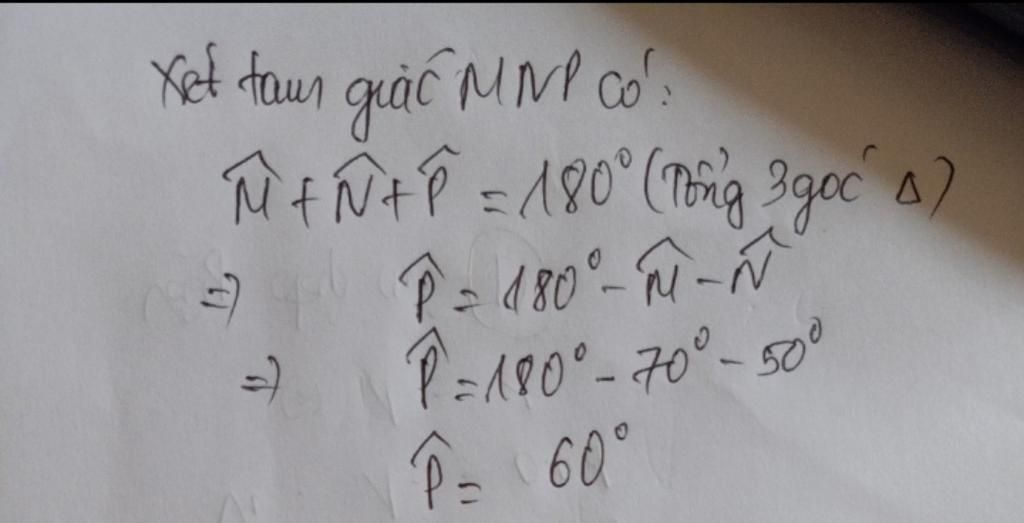 Xét tam giác MNP có:
M̂ + N̂ + P̂ = 180° (Tổng 3 góc Δ)
=> P̂ = 180° - M̂ - N̂
=> P̂ = 180° - 70° - 50°
P̂ = 60°